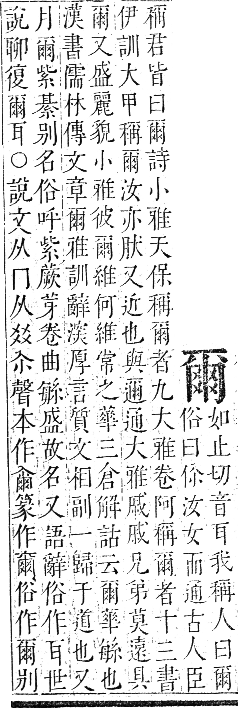 爾
如止切音耳我稱人曰爾
俗曰伱汝女而通古人臣
稱君皆曰爾詩小雅天保稱爾者九大雅卷阿稱爾者十三書
伊訓大甲稱爾汝亦肰又近也與邇通大雅戚戚兄弟莫遠具
爾又盛麗貌小雅彼爾維何維常之華三倉解詁云爾華緐也
漢書儒林傳文章爾雅訓辭深厚言質文相副一歸于道也又
月爾紫綦別名俗呼紫蕨芽卷曲緐盛故名又語辭俗作耳世
說聊復爾耳○說文从冂从㸚尒聲本作爾篆作爾俗作尔別